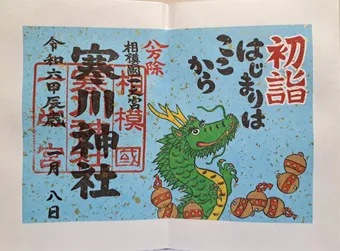 初詣
はじまりは
ここ
から
八方除
相模國一之宮
相模國
寒川神社
令和六甲辰歳 一月 八日